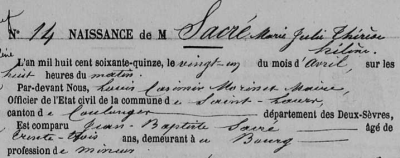 N° 14 NAISSANCE de M Sacré Marie Julie Thérèse
Hélène
L'an mil huit cent soixante-quinze, le vingt-un du mois d'Avril, sur les
huit heures du matin.
Par-devant Nous, Louis Casimir Morinet Maire,
Officier de l'Etat civil de la commune de Saint-Laurs,
canton de Coulonges département des Deux-Sèvres,
Est comparu Jean-Baptiste Sacré âgé de
trente-trois ans, demeurant à ce Bourg
profession de mineur